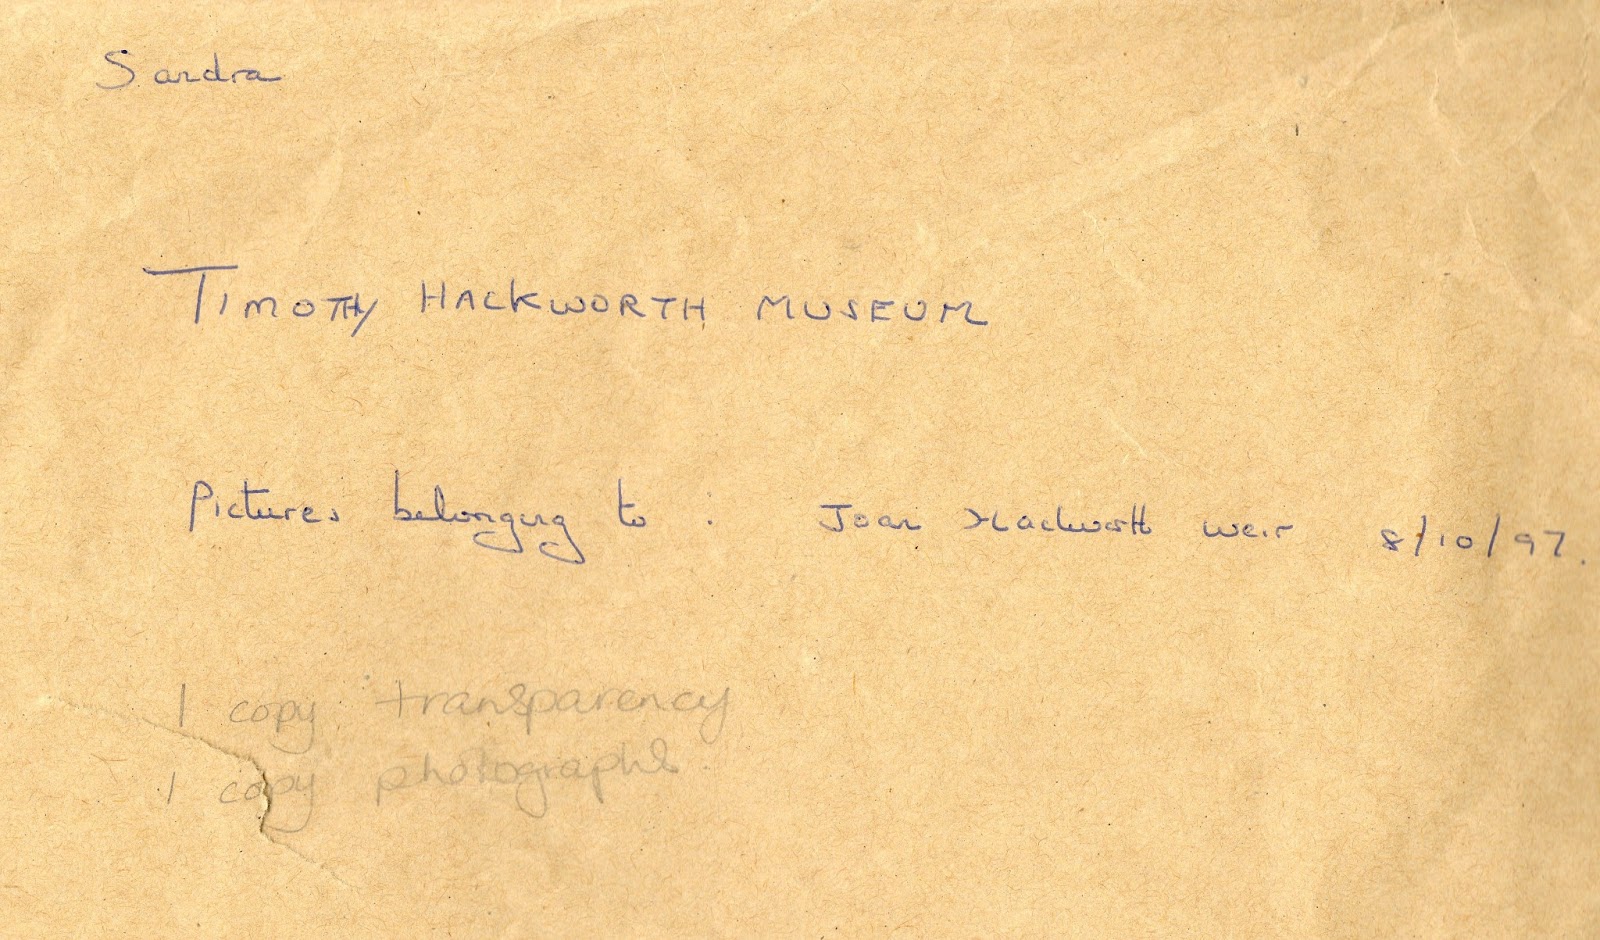 Sandra
TIMOTHY HACKWORTH MUSEUM
Pictures belonging to : Joan Hackworth Weir 8/10/97.
1 copy transparency
1 copy photographs.